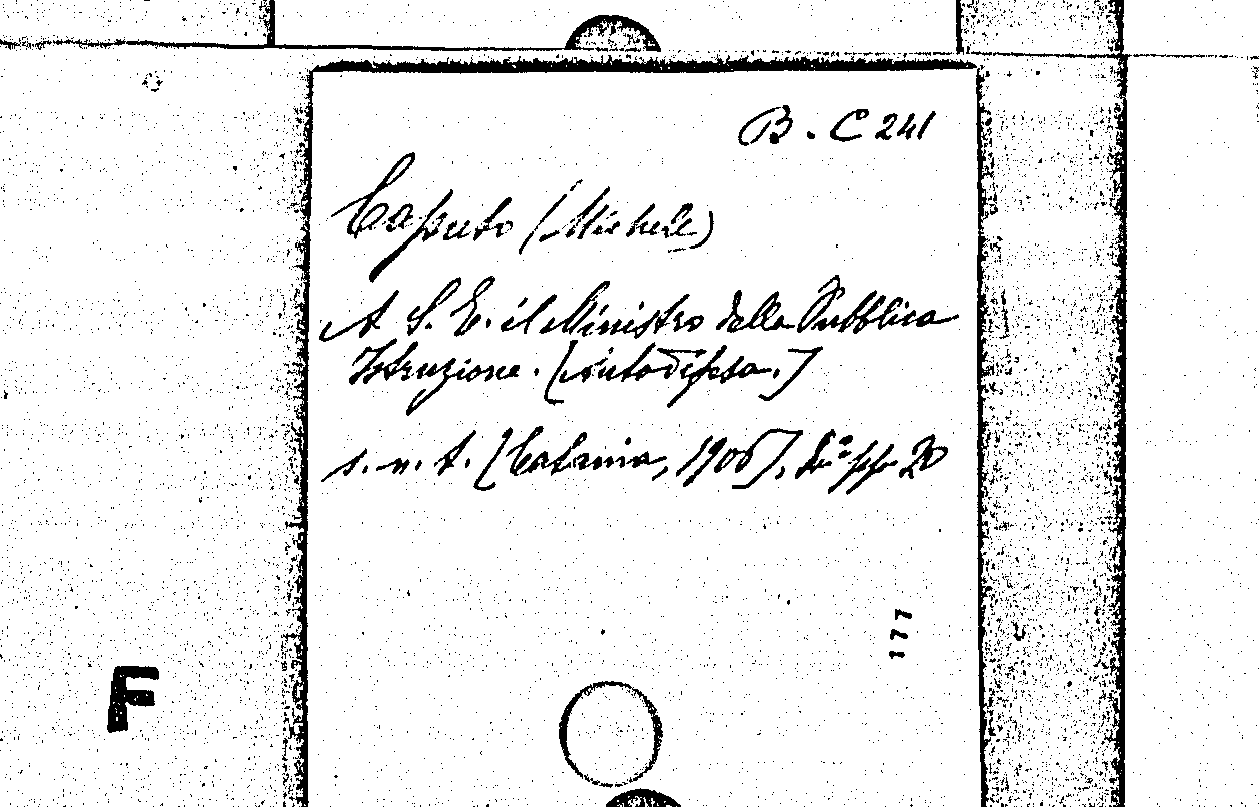 B. C 241
Caputo (Michele)
A S. E. il Ministro della Pubblica
Istruzione. [Autodifesa.]
s. n. t. [Catania, 1906], in 8° pp. 20
177
F